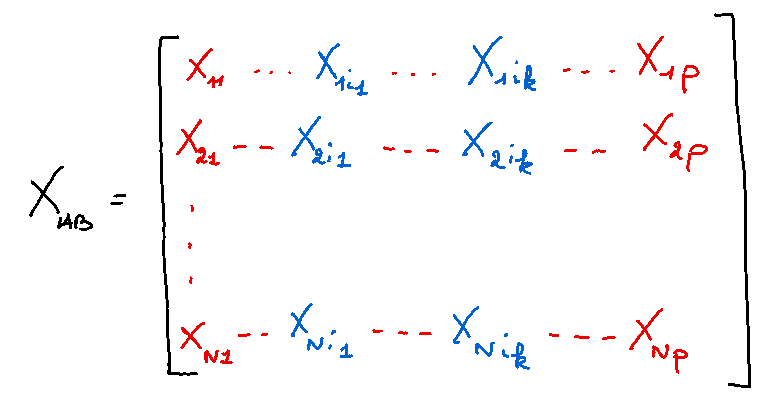 X₁₁ ... X₁ᵢ₁ ... X₁ᵢₖ ... X₁ₚ
X₂₁ --- X₂ᵢ₁ ---- X₂ᵢₖ -- X₂ₚ
X_AB =
.
.
.
X_N1 -- X_Ni1 ---- X_Nik ---- X_Np